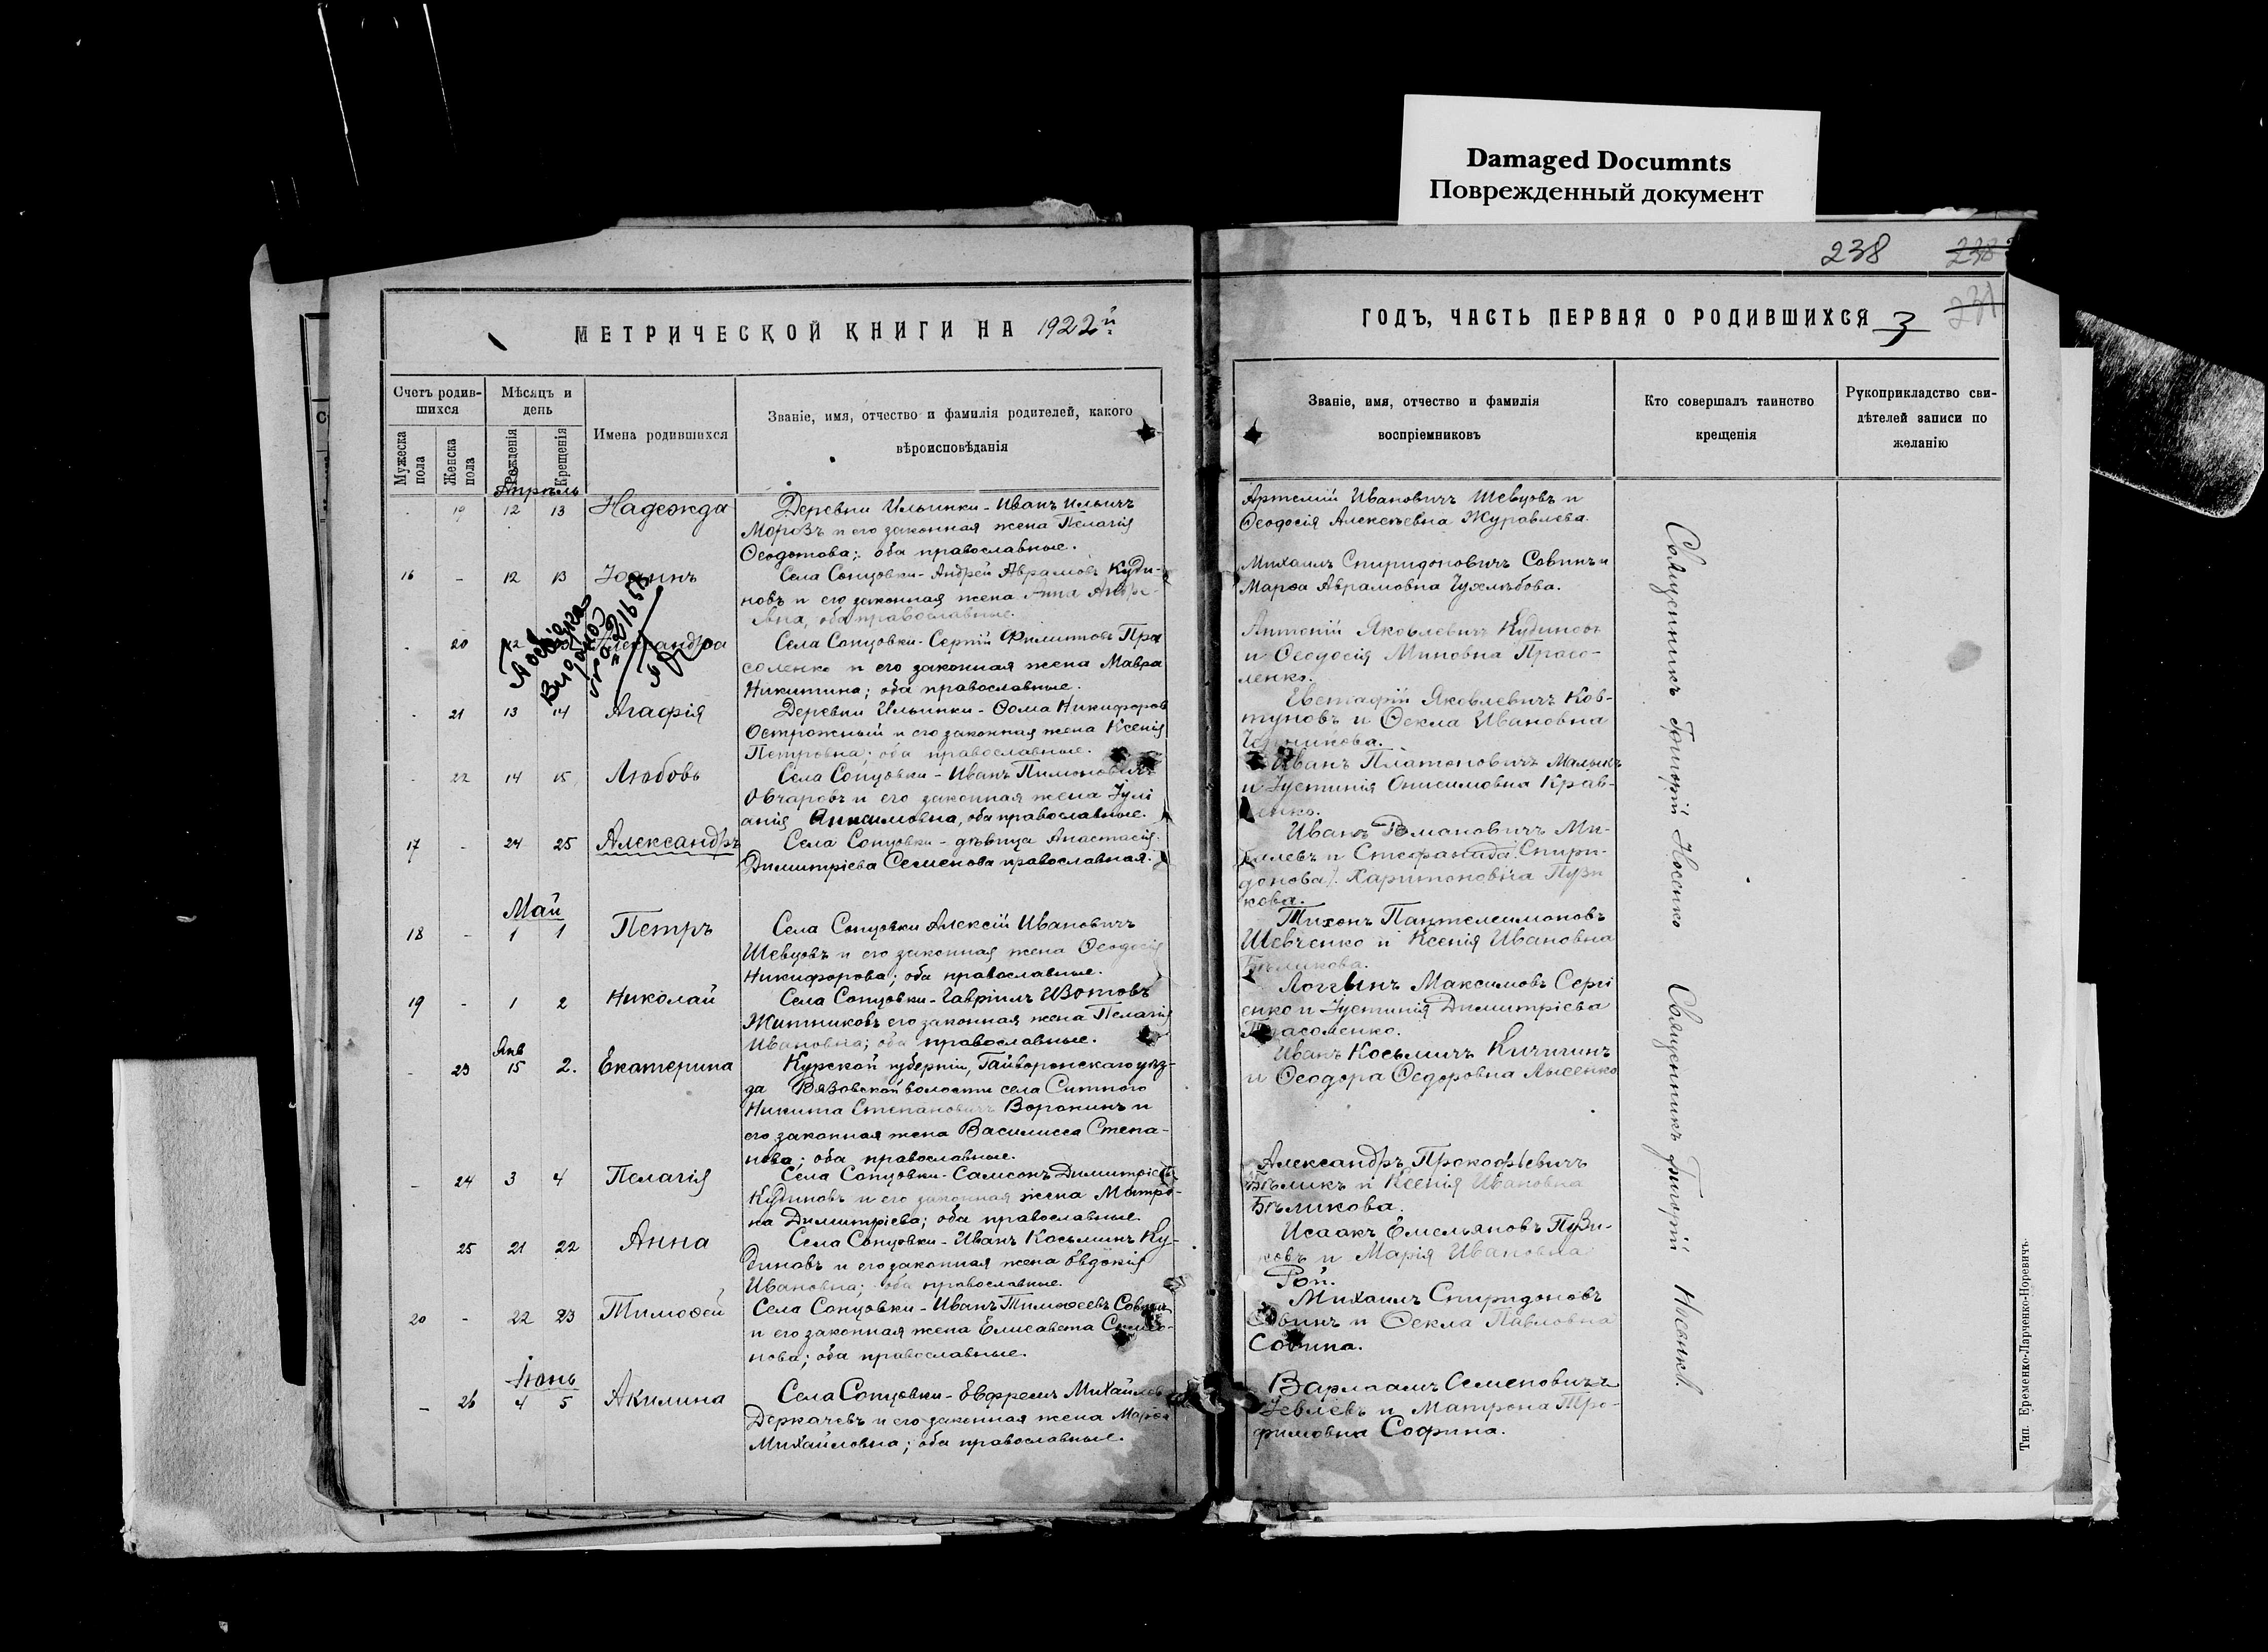 Damaged Documnts
Поврежденный документ
238
238
МЕТРИЧЕСКОЙ КНИГИ НА 1922й
ГОДЪ, ЧАСТЬ ПЕРВАЯ О РОДИВШИХСЯ 3
Счетъ родив-
шихся
Мѣсяцъ и
день
Мужеска
пола
Женска
пола
Рожденія
Крещенія
Имена родившихся
Званіе, имя, отчество и фамилія родителей, какого
вѣроисповѣданія
Званіе, имя, отчество и фамилія
воспріемниковъ
Кто совершалъ таинство
крещенія
Рукоприкладство сви-
дѣтелей записи по
желанію
Апрѣль
19 12 13 Надежда
Деревни Ильинки - Иванъ Ильичъ
Морозъ и его законная жена Пелагія
Ѳеодотова; оба православные.
Артемій Ивановичъ Шевцовъ и
Ѳеодосія Алексѣевна Журавлева.
16 - 12 13 Іоаннъ
Села Сонцовки - Андрей Аврамовъ Куди-
новъ и его законная жена Анна
оба православные.
Михаилъ Спиридоновичъ Совинъ и
Марѳа Аврамовна Чухлѣбова.
20 12 Александра
Села Сонцовки - Сергій Филиповъ Пра
соленко и его законная жена Мавра
Никитина; оба православные.
Антоній Яковлевичъ Кудиновъ
и Ѳеодосія Миновна Прасо-
ленко.
Видано
21 13 14 Агафія
Деревни Ильинки - Ѳома Никифоровъ
Острожный и его законная жена Ксенія
Петровна; оба православные.
Евстафій Яковлевичъ Ков-
туновъ и Ѳекла Ивановна
22 14 15 Любовь
Села Сонцовки - Иванъ Пимоновичъ
Овчаровъ и его законная жена Іулі
анія оба православные.
Иванъ Платоновичъ Малыкъ
и Іустинія Онисимовна Крав-
17 - 24 25 Александръ
Села Сонцовки - дѣвица Анастасія
Димитріева Семенова православная.
Иванъ Романовичъ Ми-
и Стефанида (Спири-
донова). Харитоновна Пузи
кова.
Май
18 - 1 1 Петръ
Села Сонцовки Алексій Ивановичъ
Шевцовъ и его законная жена Ѳеодосія
Никифорова; оба православные.
Тихонъ Пантелеимоновъ
Шевченко и Ксенія Ивановна
Бѣликова.
19 - 1 2 Николай
Села Сонцовки - Гавріилъ Изотовъ
Житниковъ его законная жена Пелагія
Ивановна; оба православные.
Логгынъ Максимовъ Сергі
енко и Іустинія Димитріева
Прасоленко.
Янв
- 23 15 2. Екатерина
Курской губерніи, Гайворонскаго уѣз-
да Вязовской волости села Ситного
Никита Степановичъ Воронинъ и
его законная жена Василисса Степа-
нова; оба православные.
Иванъ Косьмичъ Кичигинъ
и Ѳеодора Ѳедоровна Лысенко
- 24 3 4 Пелагія
Села Сонцовки - Самсонъ Димитріевъ
Кудиновъ и его законная жена Матро-
на Димитріева; оба православные.
Александръ Прокофіевичъ
Бѣликъ и Ксенія Ивановна
Бѣликова.
25 21 22 Анна
Села Сонцовки - Иванъ Косьминъ Ку-
диновъ и его законная жена Евдокія
Ивановна; оба православные.
Исаакъ Емельяновъ Пузи-
ковъ и Марія Ивановна
Рой.
20 - 22 23 Тимоѳей
Села Сонцовки - Иванъ Тимоѳеевъ Совинъ
и его законная жена Елисавета
нова; оба православные.
Михаилъ Спиридоновъ
Совинъ и Ѳекла Павловна
Совина.
Іюнь
- 26 4 5 Акилина
Села Сонцовки - Евфремъ Михайловъ
Деркачевъ и его законная жена Марѳа
Михайловна; оба православные.
Варлаамъ Семеновичъ
Іевлевъ и Матрона Тро-
фимовна Софина.
Священникъ Григорій Носенко
Священникъ Григорій
Тип. Еременко-Ларченко-Норевичъ